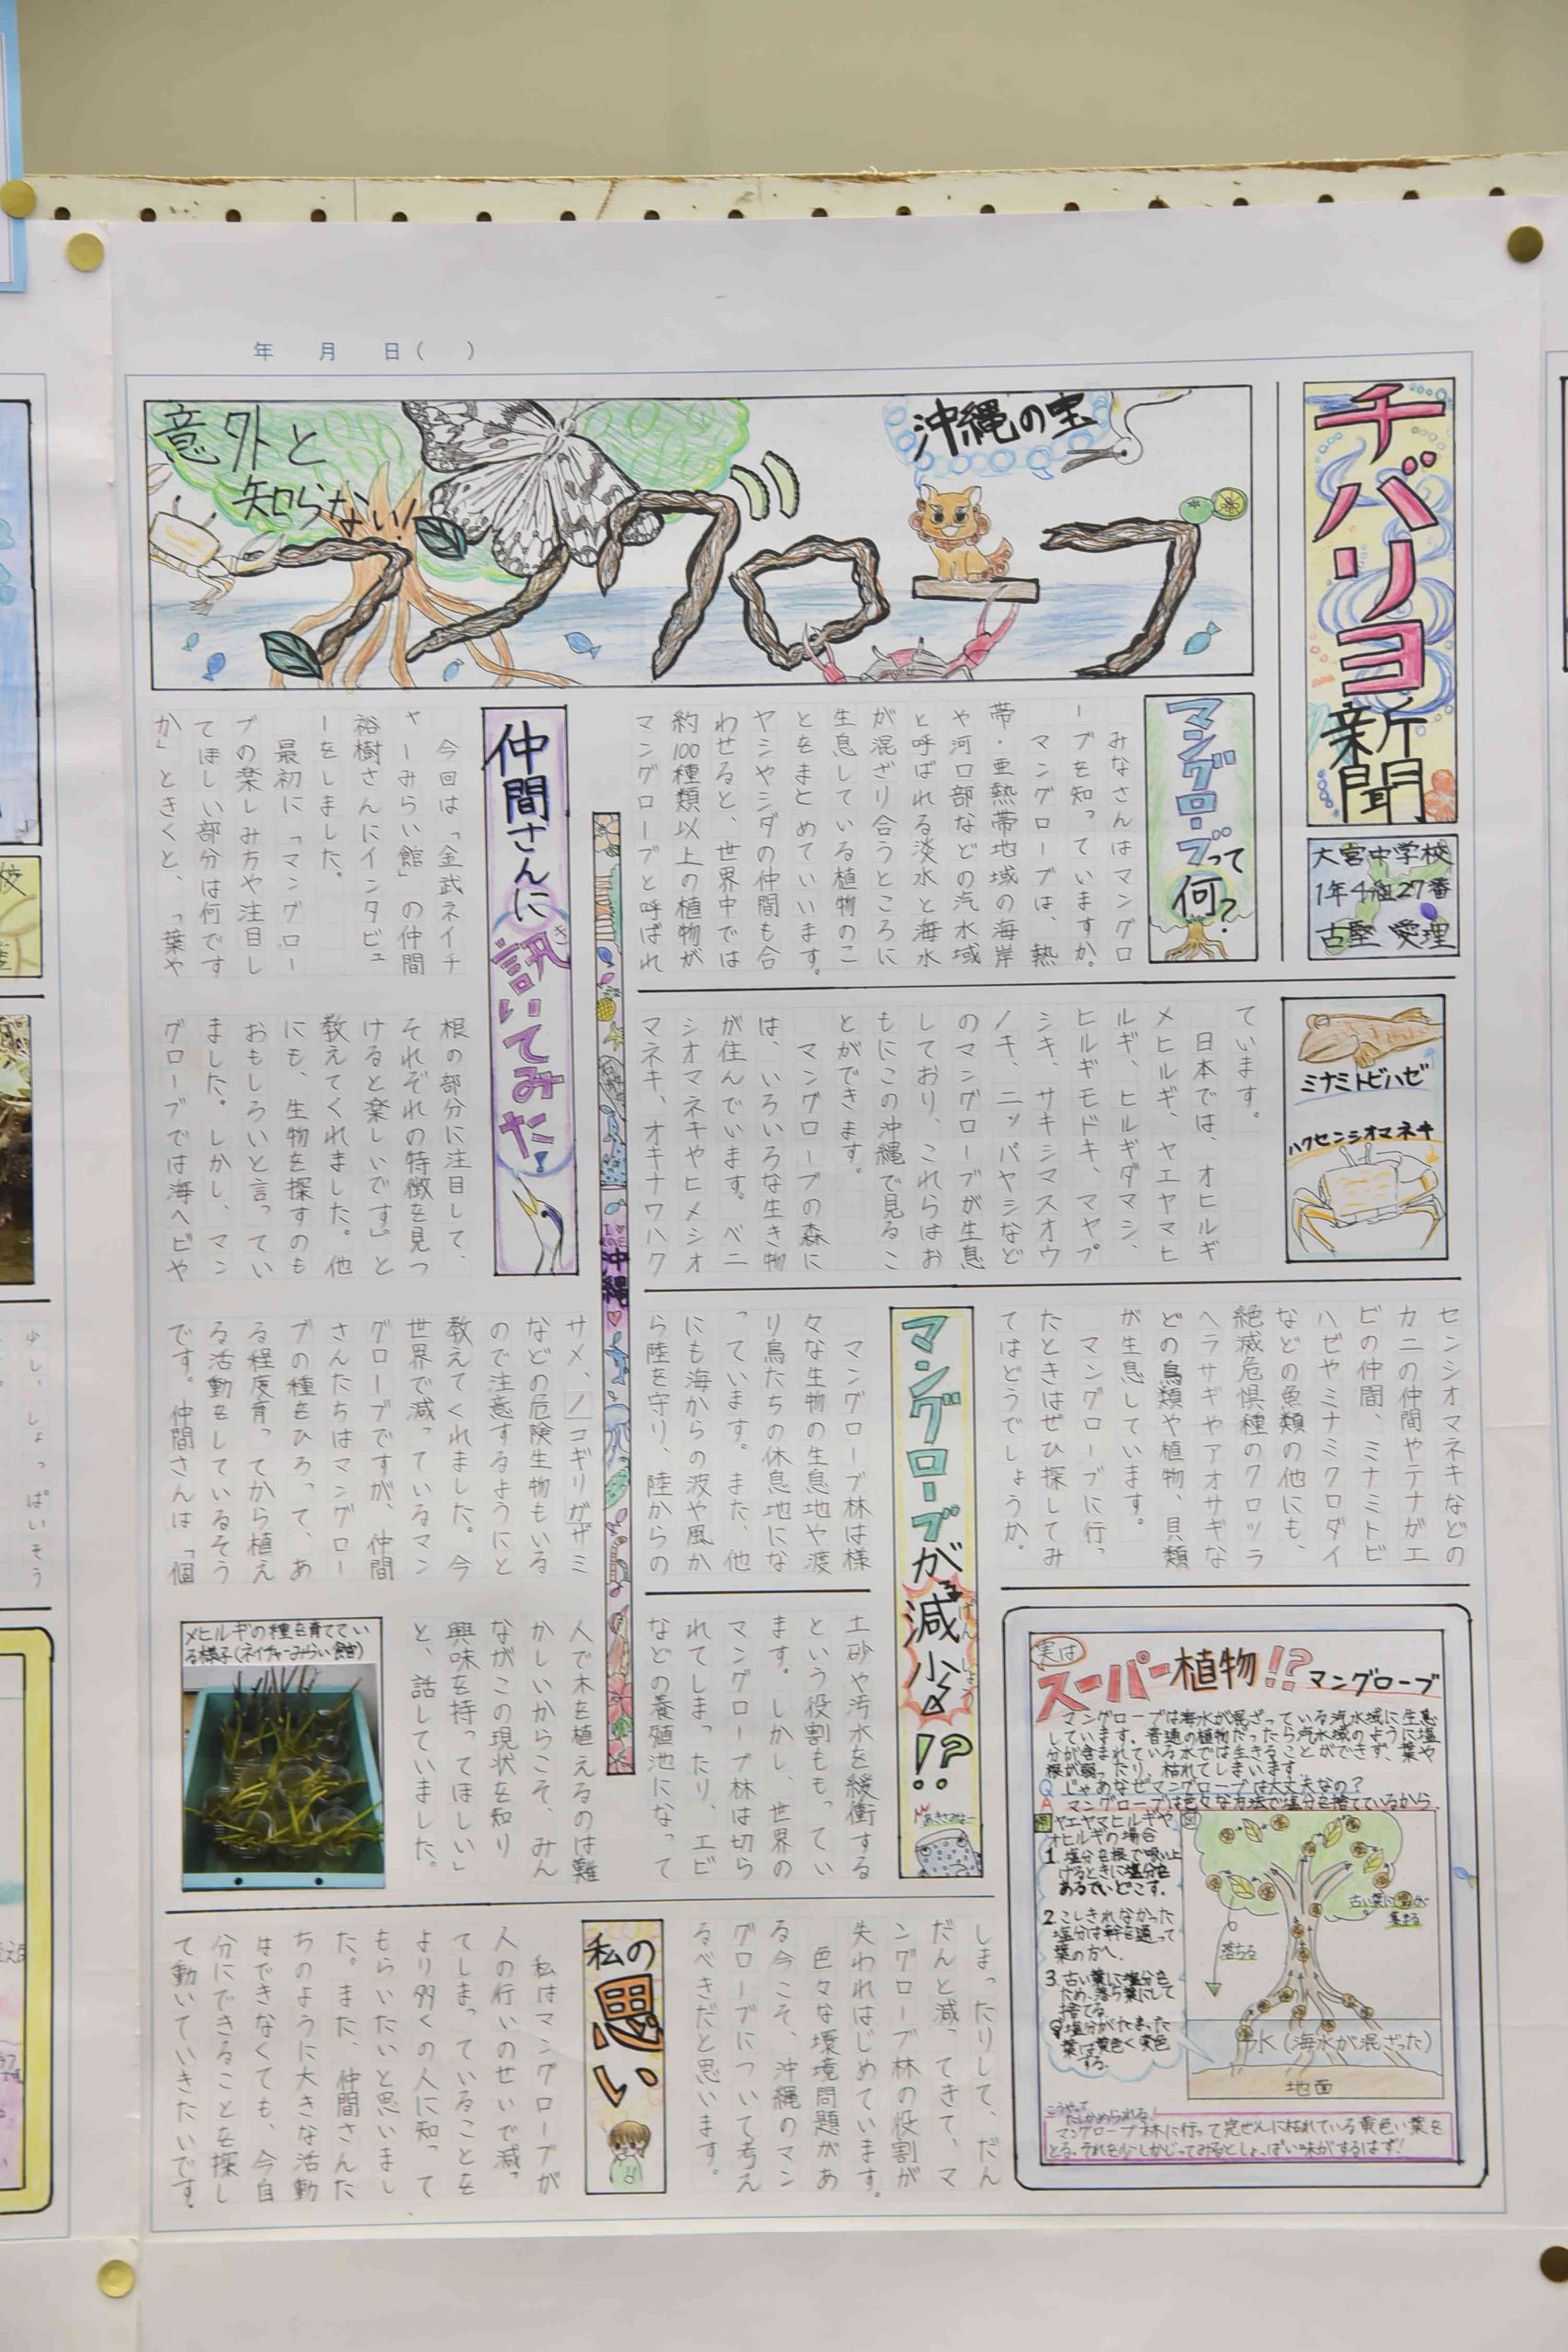 年　月　日（　）
チバリヨ新聞
大宮中学校
1年4組27番
古堅 愛理
沖縄の宝
意外と
知らない!
マングローブ
マングローブって何?
みなさんはマングロ
ーブを知っていますか。
マングローブは、熱
帯・亜熱帯地域の海岸
や河口部などの汽水域
と呼ばれる淡水と海水
が混ざり合うところに
生息している植物のこ
とをまとめています。
ヤシやシダの仲間も合
わせると、世界中では
約100種類以上の植物が
マングローブと呼ばれ
ミナミトビハゼ
ハクセンシオマネキ
ています。
日本では、オヒルギ
メヒルギ、ヤエヤマヒ
ルギ、ヒルギダマシ、
ヒルギモドキ、マヤプ
シキ、サキシマスオウ
ノキ、ニッパヤシなど
のマングローブが生息
しており、これらはお
もにこの沖縄で見るこ
とができます。
マングローブの森に
は、いろいろな生き物
が住んでいます。ベニ
シオマネキやヒメシオ
マネキ、オキナワハク
センシオマネキなどの
カニの仲間やテナガエ
ビの仲間、ミナミトビ
ハゼやミナミクロダイ
などの魚類の他にも、
絶滅危惧種のクロツラ
ヘラサギやアオサギな
どの鳥類や植物、貝類
が生息しています。
マングローブに行っ
たときはぜひ探してみ
てはどうでしょうか。
マングローブが減少!?
げんしょう
あきさみよー
マングローブ林は様
々な生物の生息地や渡
り鳥たちの休息地にな
っています。また、他
にも海からの波や風か
ら陸を守り、陸からの
土砂や汚水を緩衝する
という役割ももってい
ます。しかし、世界の
マングローブ林は切ら
れてしまったり、エビ
などの養殖池になって
しまったりして、だん
だんと減ってきて、マ
ングローブ林の役割が
失われはじめています。
色々な環境問題があ
る今こそ、沖縄のマン
グローブについて考え
るべきだと思います。
I LOVE 沖縄
仲間さんに訊いてみた!
き
今回は「金武ネイチ
ャーみらい館」の仲間
裕樹さんにインタビュ
ーをしました。
最初に「マングロー
ブの楽しみ方や注目し
てほしい部分は何です
か」ときくと、「葉や
根の部分に注目して、
それぞれの特徴を見つ
けると楽しいです」と
教えてくれました。他
にも、生物を探すのも
おもしろいと言ってい
ました。しかし、マン
グローブでは海ヘビや
サメ、ノコギリガザミ
などの危険生物もいる
ので注意するようにと
教えてくれました。今
世界で減っているマン
グローブですが、仲間
さんたちはマングロー
ブの種をひろって、あ
る程度育ってから植え
る活動をしているそう
です。仲間さんは「個
人で木を植えるのは難
かしいからこそ、みん
ながこの現状を知り
興味を持ってほしい」
と、話していました。
メヒルギの種を育ててい
る様子(ネイチャーみらい館)
私の思い
私はマングローブが
人の行いのせいで減っ
てしまっていることを
より多くの人に知って
もらいたいと思いまし
た。また、仲間さんた
ちのように大きな活動
はできなくても、今自
分にできることを探し
て動いていきたいです。
実は
スーパー植物!? マングローブ
マングローブは海水が混ざっている汽水域に生息
しています。普通の植物だったら汽水域のように塩
分が含まれている水では生きることができず、葉や
根が弱ったり、枯れてしまいます。
Q じゃあなぜマングローブは大丈夫なの?
A マングローブは色々な方法で塩分を捨てているから。
例 ヤエヤマヒルギや
オヒルギの場合
1. 塩分を根で吸い上
げるときに塩分を
あるていどこす。
2. こしきれなかった
塩分は幹を通って
葉の方へ。
3. 古い葉に塩分を
ため、落ち葉にして
捨てる
塩分がたまった
葉は黄色く変色
する。
古い葉に塩が
集まる
落ちる
水(海水が混ざった)
地面
こうやって
たしかめられる!
マングローブ林に行って完ぜんに枯れている黄色い葉を
とる。それを少しかじってみるとしょっぱい味がするはず!
少し、しょっぱいそう